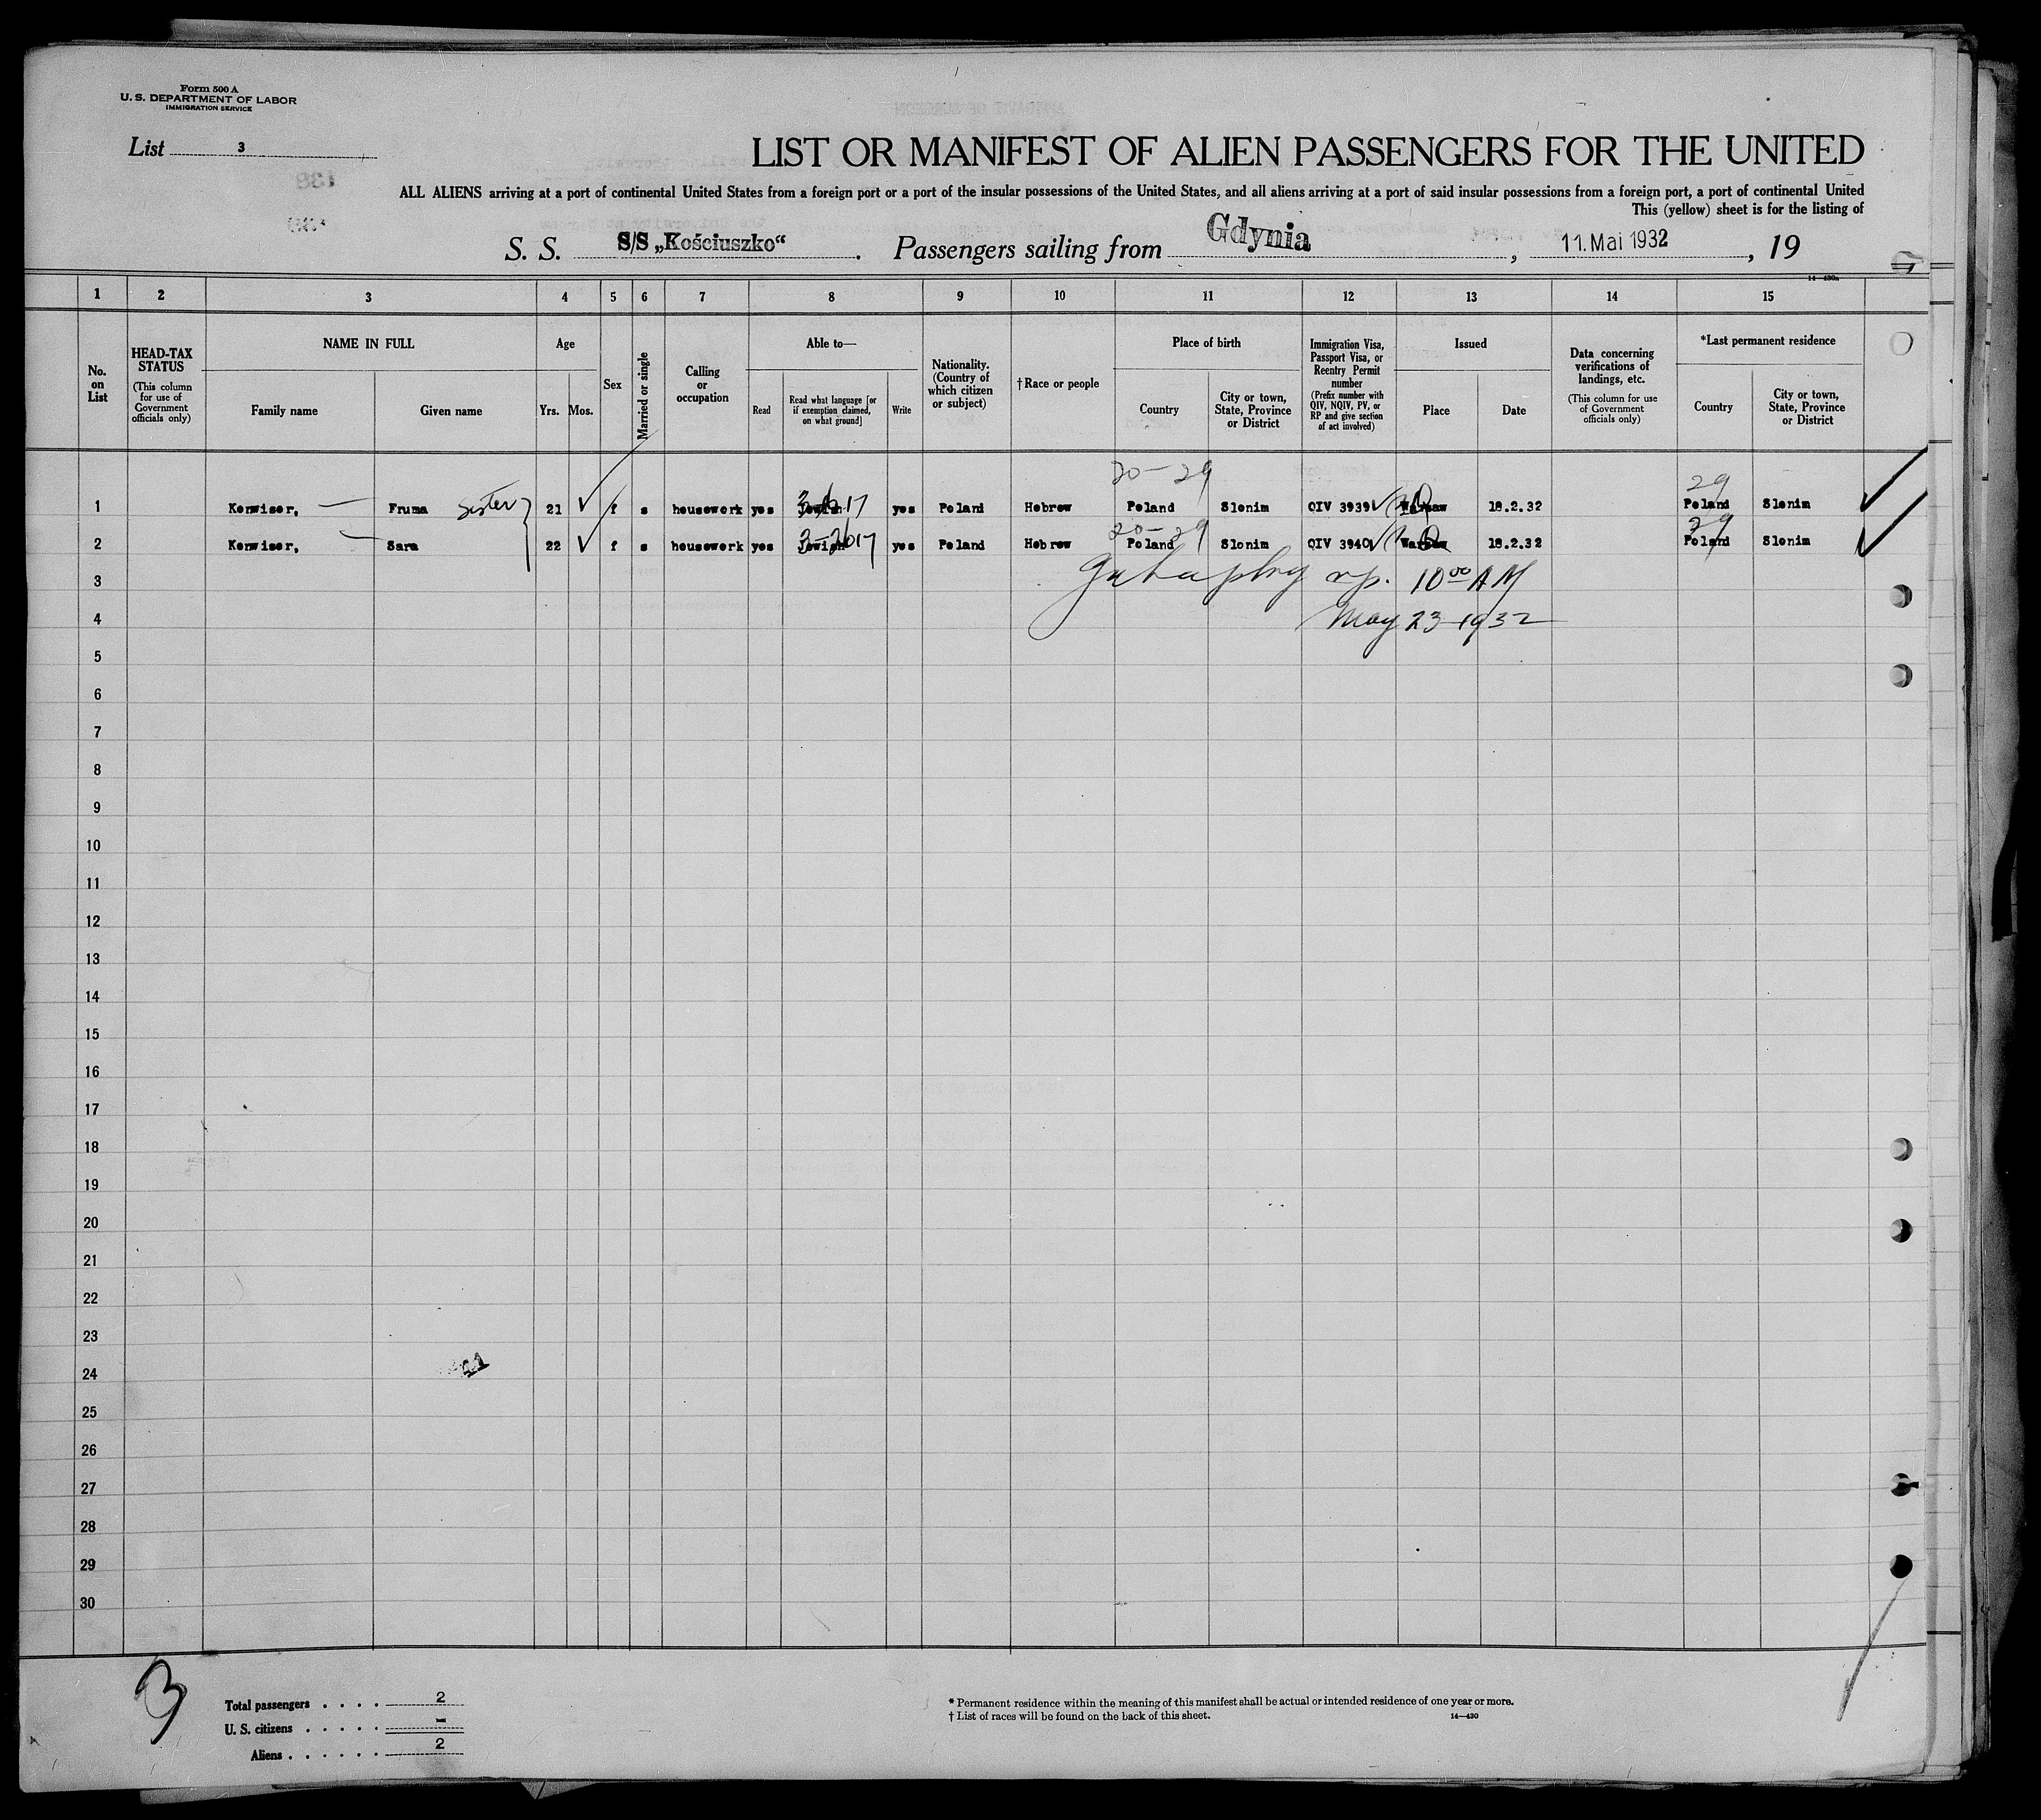 Form 500 A
U. S. DEPARTMENT OF LABOR
IMMIGRATION SERVICE
List 3
LIST OR MANIFEST OF ALIEN PASSENGERS FOR THE UNITED
ALL ALIENS arriving at a port of continental United States from a foreign port or a port of the insular possessions of the United States, and all aliens arriving at a port of said insular possessions from a foreign port, a port of continental United
This (yellow) sheet is for the listing of
S. S. S/S „Kościuszko“ . Passengers sailing from Gdynia , 11. Mai 1932 , 19
14—430a
1 2 3 4 5 6 7 8 9 10 11 12 13 14 15
No. on List
HEAD-TAX STATUS (This column for use of Government officials only)
NAME IN FULL
Family name Given name
Age
Yrs. Mos.
Sex
Married or single
Calling or occupation
Able to—
Read
Read what language [or if exemption claimed, on what ground]
Write
Nationality. (Country of which citizen or subject)
† Race or people
Place of birth
Country
City or town, State, Province or District
Immigration Visa, Passport Visa, or Reentry Permit number (Prefix number with QIV, NQIV, PV, or RP and give section of act involved)
Issued
Place Date
Data concerning verifications of landings, etc. (This column for use of Government officials only)
*Last permanent residence
Country
City or town, State, Province or District
20-29 29
1 Kenwiser, — Fruma Sister 21 f s housework yes Jewish yes Poland Hebrew Poland Slonim QIV 3939 Warsaw 18.2.32 Poland Slonim
20-29 29
2 Kenwiser, — Sara 22 f s housework yes Jewish yes Poland Hebrew Poland Slonim QIV 3940 Warsaw 18.2.32 Poland Slonim
3 10 00 AM
4 May 23-1932
5
6
7
8
9
10
11
12
13
14
15
16
17
18
19
20
21
22
23
24
25
26
27
28
29
30
3
Total passengers . . . . 2
U. S. citizens . . . . . -
Aliens . . . . . . 2
* Permanent residence within the meaning of this manifest shall be actual or intended residence of one year or more.
† List of races will be found on the back of this sheet.
14—430